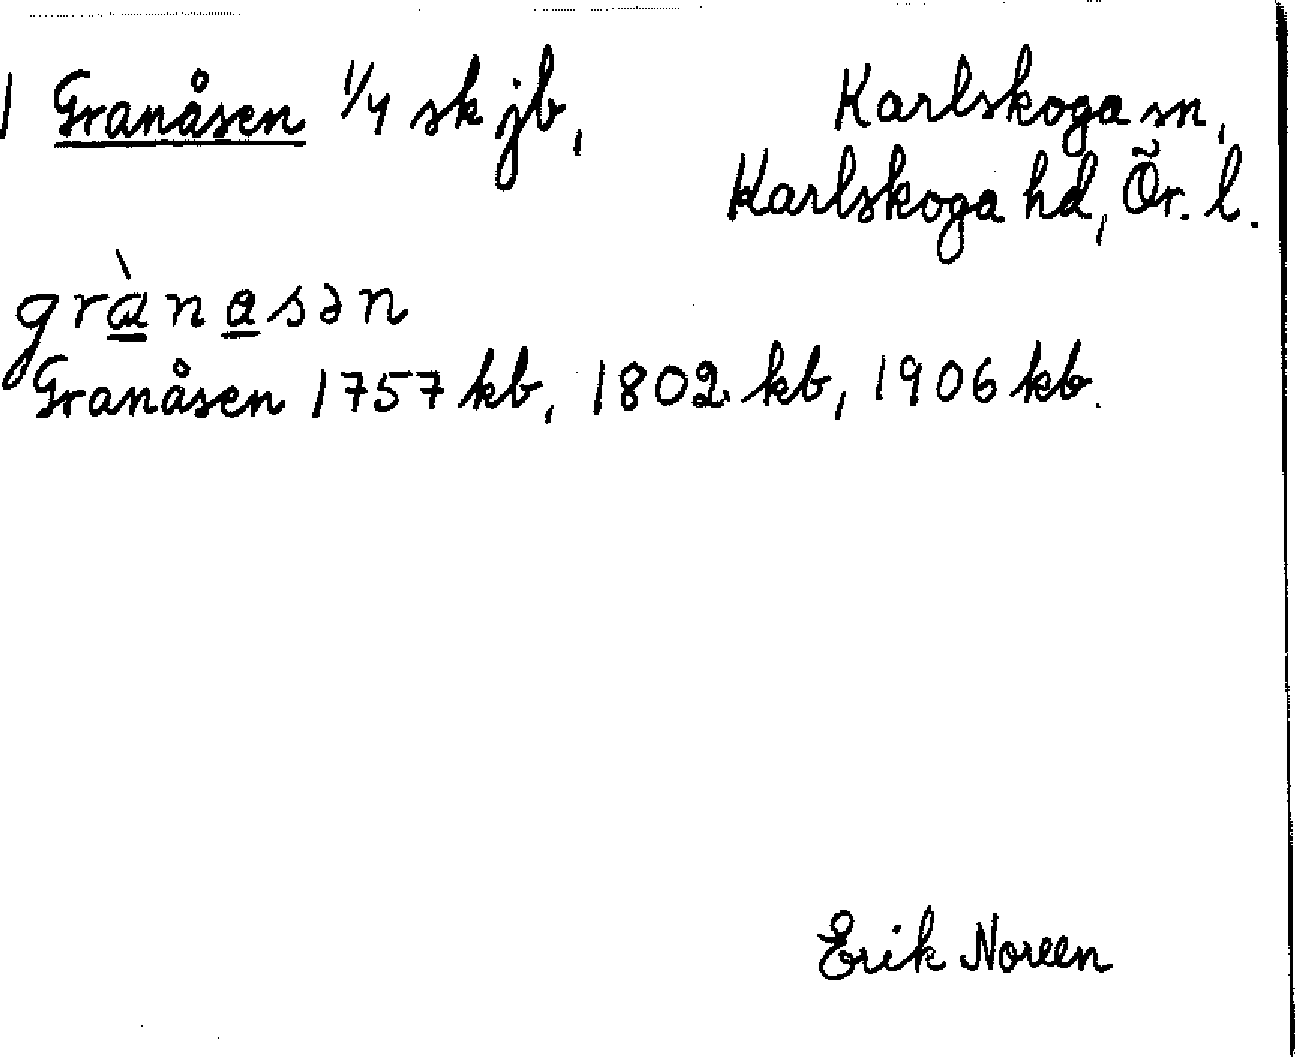 1 Granåsen 1/4 sk jb, Karlskoga sn,
Karlskoga hd, Ör. l.
grànasən
Granåsen 1757 kb, 1802 kb, 1906 kb.
Erik Noreen